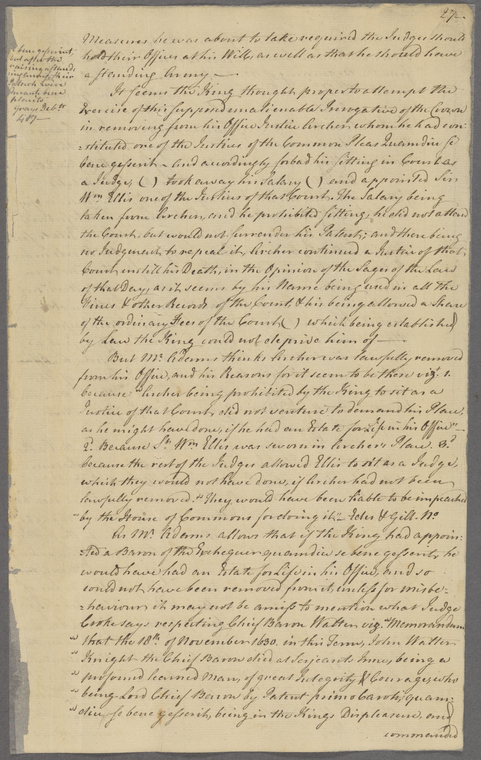 27
Measures he was about to take required the Judges should
hold their Offices at his Will, as well as that he should have
a standing Army —
It seems the King thought proper to attempt the
Exercise of this supposed unalienable Prerogative of the Crown
in removing from his Office Justice Archer, whom he had con-
stituted one of the Justices of the Common Pleas Quamdiu se
bene gesserit — And accordingly forbad his sitting in Court as
a Judge, ( ) took away his Salary ( ) and appointed Sir
Wm Ellis one of the Justices of that Court. The Salary being
taken from Archer, and he prohibited sitting, he did not attend
the Court but would not surrender his Patent; and there being
no Judgment to repeal it, Archer continued a Justice of that
Court, until his Death, in the Opinion of the Sages of the Law
of that Day, as it seems by his Name being used in all the
Fines & other Records of the Court, & his being allowed a Share
of the ordinary Fees of the Court ( ) which being established
by Law the King could not deprive him of —
But Mr. Adams thinks Archer was lawfully removed
from his Office, and his Reasons for it seem to be these viz. 1.
because "Archer being prohibited by the King to sit as a
Justice of that Court, did not venture to demand his Place,
as he might have done, if he had an Estate for Life in his Office" —
2d. Because Sr. Wm Ellis was sworn in Archer's Place. 3d.
because the rest of the Judges allowed Ellis to sit as a Judge,
which they would not have done, if Archer had not been
lawfully removed. "They would have been liable to be impeached
by the House of Commons for doing it" — Edes & Gill. No
As Mr. Adams allows that if the King had appoin-
ted a Baron of the Exchequer quamdiu se bene gesserit, he
would have had an Estate for Life in his Office, and so
could not have been removed from it, unless for misbe-
haviour; it may not be amiss to mention what Judge
Croke says respecting Chief Baron Walter viz. "Memorandum
" that the 18th. of November 1630. in this Term, John Walter
" Knight the Chief Baron died at Serjeants Inn, being a
" profound learned Man, of great Integrity & Courage; who
" being Lord Chief Baron by Patent primo Caroli, quam-
" diu se bene gesserit, being in the Kings Displeasure, and
commanded
se bene gesserint,